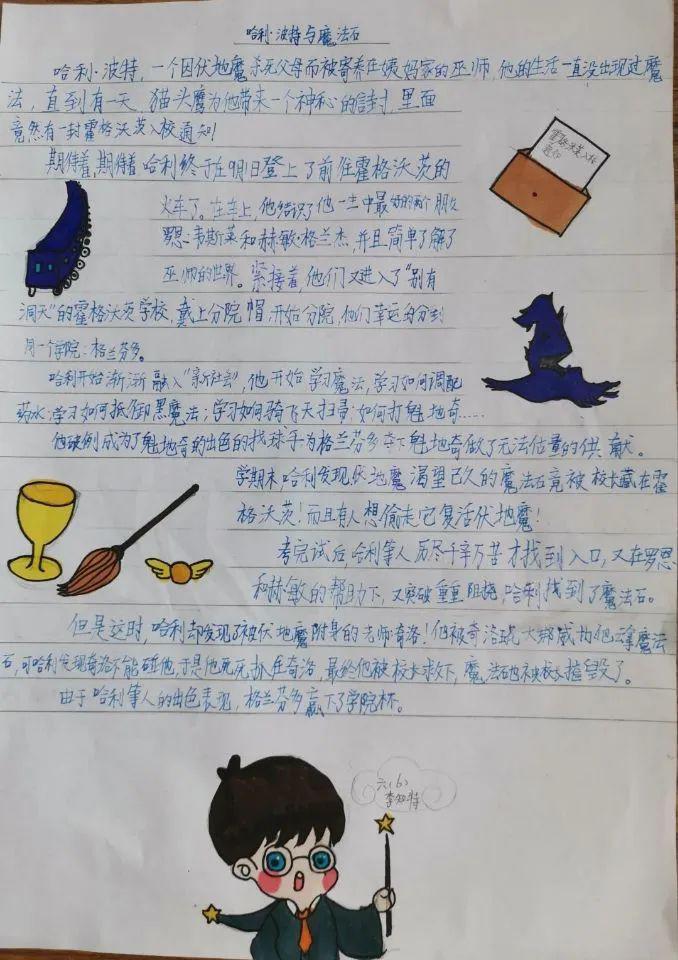 哈利·波特与魔法石
哈利·波特，一个因伏地魔杀死父母而被寄养在姨妈家的巫师，他的生活一直没出现过魔
法，直到有一天，猫头鹰为他带来一个神秘的信封，里面
竟然有一封霍格沃茨入校通知！
霍格沃茨入校
通知
期待着，期待着，哈利终于在9月1日登上了前往霍格沃茨的
火车了。在车上，他结识了他一生中最好的两个朋友
罗恩·韦斯莱和赫敏·格兰杰，并且简单了解了
巫师的世界。紧接着，他们又进入了“别有
洞天”的霍格沃茨学校，戴上分院帽，开始分院，他们幸运的分到
同一个学院：格兰芬多。
哈利开始渐渐融入“新社会”，他开始学习魔法，学习如何调配
药水；学习如何抵御黑魔法；学习如何骑飞天扫帚；如何打魁地奇……
他破例成为了魁地奇的出色的找球手，为格兰芬多夺下魁地奇做了无法估量的供献。
学期末，哈利发现伏地魔渴望已久的魔法石竟被校长藏在霍
格沃茨！而且有人想偷走它复活伏地魔！
考完试后，哈利等人历尽千辛万苦才找到入口，又在罗恩
和赫敏的帮助下，又突破重重阻挠，哈利找到了魔法石。
但是这时，哈利却发现了被伏地魔附身的老师奇洛！他被奇洛
石，可哈利发现奇洛不能碰他，于是他死死抓住奇洛，最终他被校长救下，魔法石也被校长摧毁了。
由于哈利等人的出色表现，格兰芬多赢下了学院杯。
六（6）
李知特